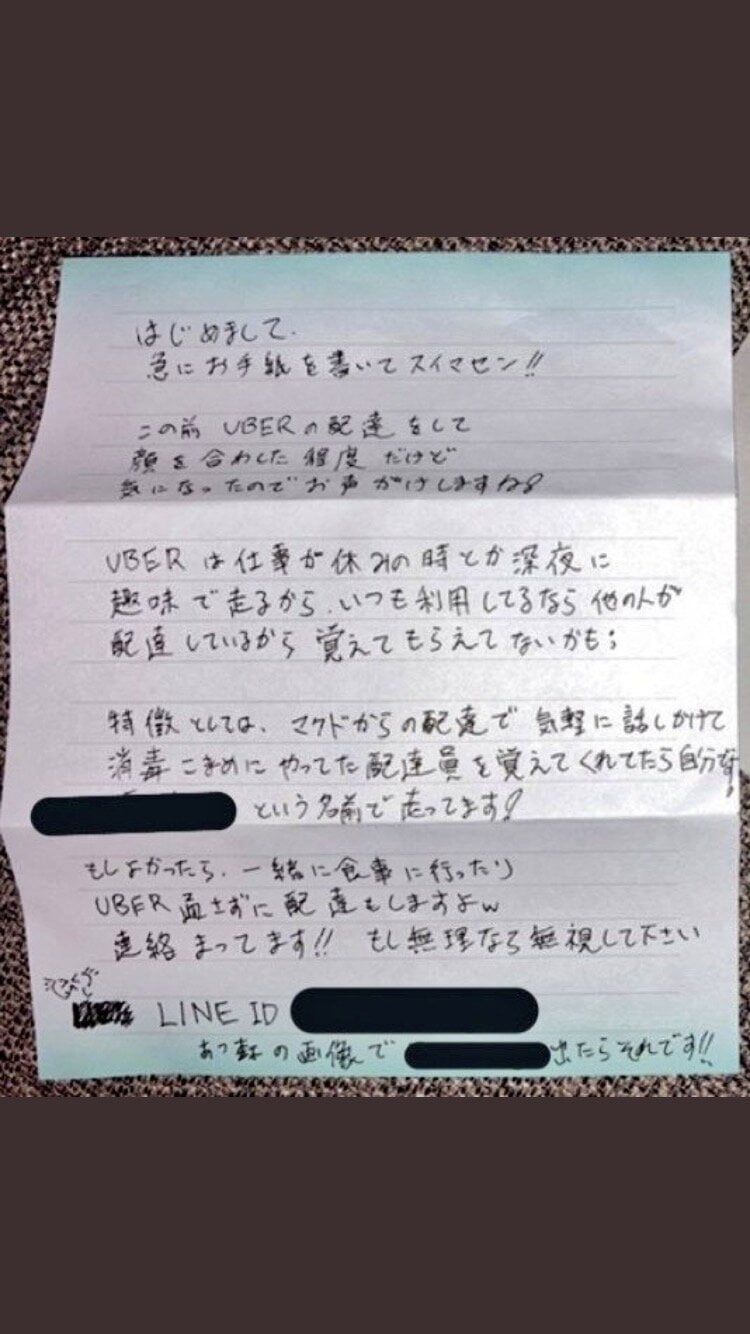 はじめまして.
急にお手紙を書いてスイマセン!!
この前 UBERの配達をして
顔を合わした程度だけど
気になったのでお声がけしますね!
UBERは仕事が休みの時とか深夜に
趣味で走るから、いつも利用してるなら他の人が
配達しているから覚えてもらえてないかも;
特徴としては、マクドからの配達で気軽に話しかけて
消毒こまめにやってた配達員を覚えてくれてたら自分です!
という名前で走ってます!
もしよかったら、一緒に食事に行ったり
UBER 通さずに配達もしますよw
連絡まってます!! もし無理なら無視して下さい
LINE ID
の画像で 出たらそれです!!